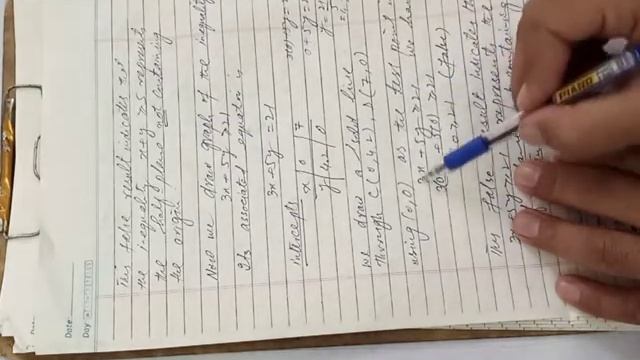 Date
Day
This false result indicates that
the inequality x+y ≥ 5 represents
the half plane not containing
the origin.
Now we draw graph of the inequality
3x + 5y ≥ 21
Its associated equation is
3x + 5y = 21
Intercepts
x | 0 | 7
y | 4.2 | 0
3(0)+5y=21
0+5y=21
we draw a solid line
Through C(0,4.2), D(7,0)
using (0,0) as the test point
we have
3x + 5y ≥ 21
≥ 21
≥ 21 (False)
This false result indicates
3x+5y ≥ 21 represent the
containing
PIANO